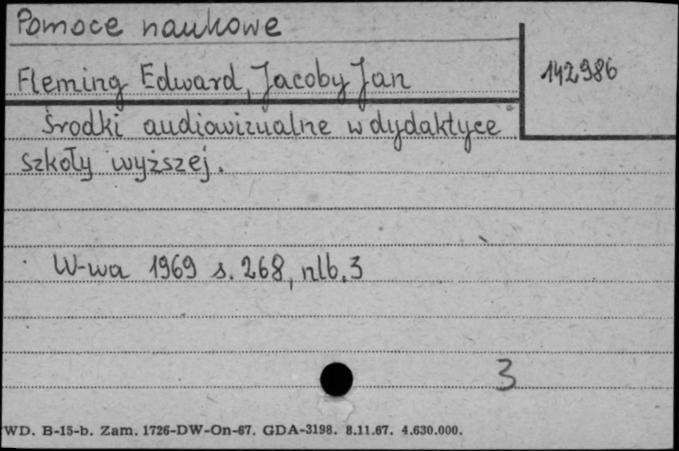 Pomoce naukowe
Fleming Edward, Jacoby Jan
142986
Środki audiowizualne w dydaktyce
szkoły wyższej.
W-wa 1969 s. 268, nlb. 3
3
WD. B-15-b. Zam. 1726-DW-On-67. GDA-3198. 8.11.67. 4.630.000.